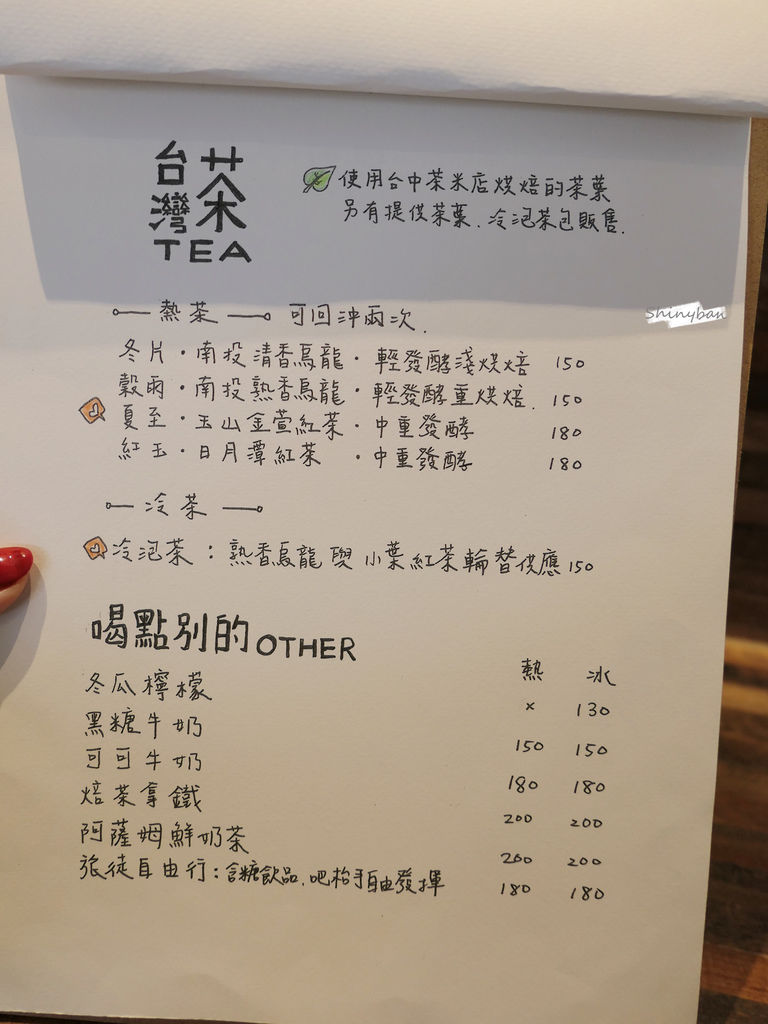 台灣茶
TEA
使用台中茶米店烘焙的茶葉
另有提供茶葉、冷泡茶包販售.
Shinyban
熱茶 可回沖兩次.
冬片・南投清香烏龍・輕發酵淺烘焙 150
穀雨・南投熟香烏龍・輕發酵重烘焙. 150
夏至・玉山金萱紅茶・中重發酵 180
紅玉・日月潭紅茶・中重發酵 180
冷茶
冷泡茶：熟香烏龍與小葉紅茶輪替供應 150
喝點別的 OTHER
熱 冰
冬瓜檸檬 x 130
黑糖牛奶 150 150
可可牛奶 180 180
焙茶拿鐵 200 200
阿薩姆鮮奶茶 200 200
旅徒自由行：含糖飲品、吧枱手自由發揮 180 180